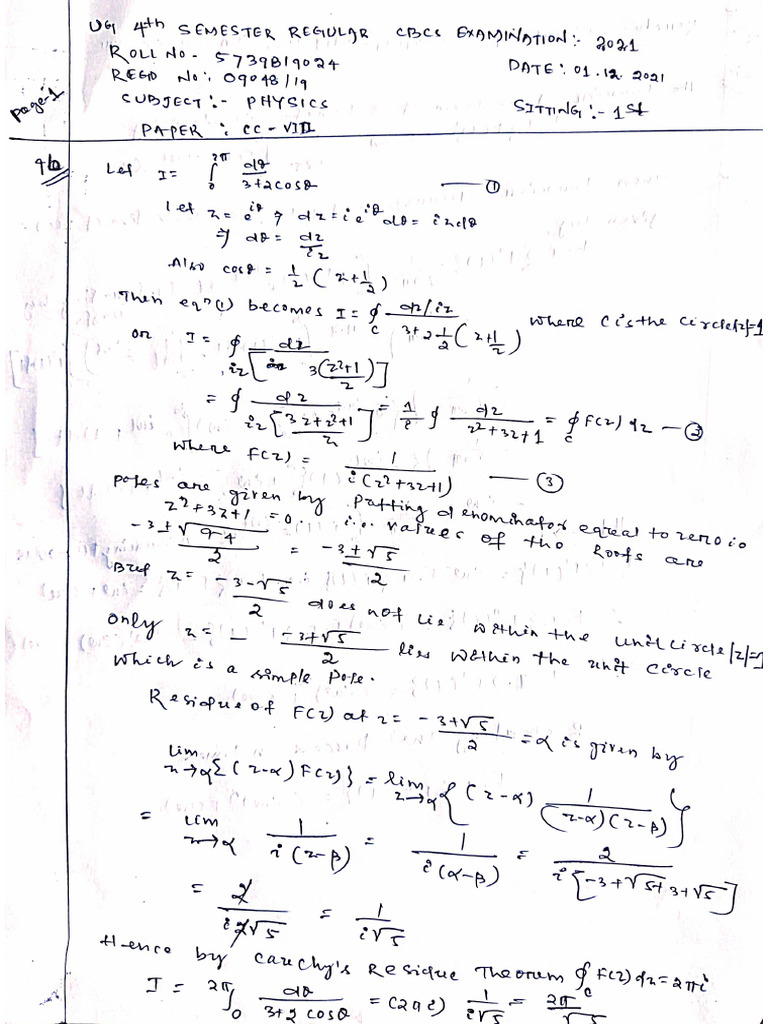 UG 4th SEMESTER REGULAR CBCS EXAMINATION:- 2021
ROLL NO - 5739819024
DATE: 01.12.2021
REGD NO:- 09048/19
SUBJECT:- PHYSICS
SITTING:- 1st
PAPER: CC-VIII
page-1
Let I = ∫_0^{2π} dθ/(3+2cosθ) —— ①
Let z = e^{iθ} ⇒ dz = i e^{iθ} dθ = iz dθ
⇒ dθ = dz/iz
Also cosθ = 1/2 (z + 1/z)
Then eqn (1) becomes I = ∮_C (dz/iz)/(3+2 1/2 (z+1/z)) where C is the circle |z|=1
or I = ∮ dz/(iz[3 (z²+1)/z])
= ∮ dz/(iz[(3z+z²+1)/z]) = 1/i ∮ dz/(z²+3z+1) = ∮_C F(z) dz —②
where F(z) = 1/(i(z²+3z+1)) —③
Poles are given by putting denominator equal to zero i.e
z²+3z+1 = 0. i.e. values of the roots are
(-3±√(9-4))/2 = (-3±√5)/2
But z = (-3-√5)/2 does not lie within the unit circle |z|=1
only z = (-3+√5)/2 lies within the unit circle
which is a simple Pole.
Residue of F(z) at z = (-3+√5)/2 = α is given by
lim z→α {(z-α) F(z)} = lim z→α {(z-α) 1/((z-α)(z-β))}
= lim z→α 1/(i(z-β)) = 1/(i(α-β)) = 2/(i[-3+√5+3+√5])
= 2/(i2√5) = 1/(i√5)
Hence by Cauchy's Residue Theorem ∮_C F(z) dz = 2πi
I = ∫_0^{2π} dθ/(3+2cosθ) = (2πi) 1/(i√5) = 2π/√5